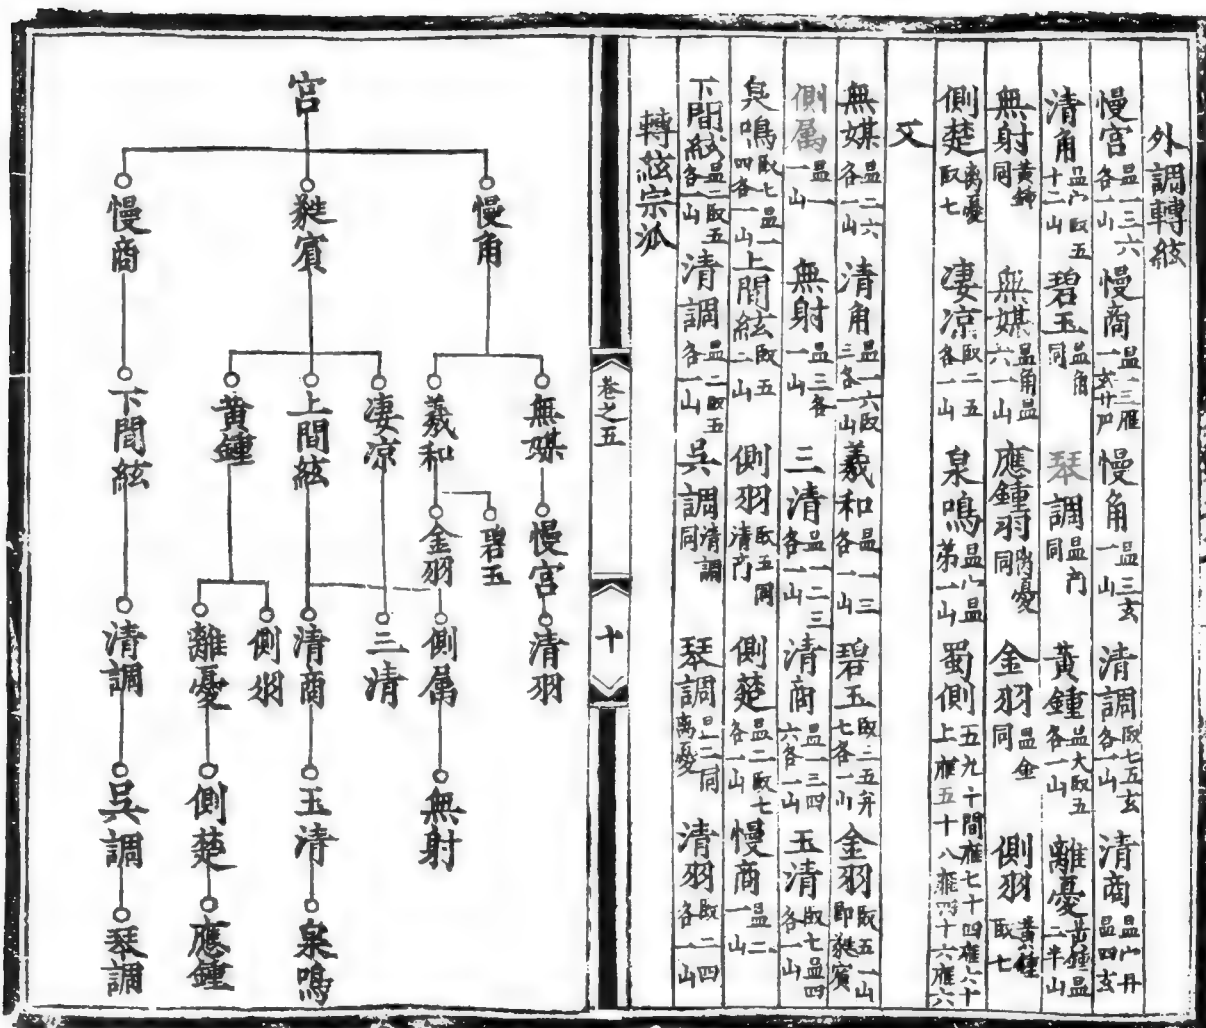 外調轉絃
慢宮 昷一三六各一山 慢商 昷一三雁一玄廿尸 慢角 昷三玄一山 清調 取七五玄各一山 清商
清角 十二山 碧玉 昷角同 琴調 同 黃鍾 昷大取五各一山 離憂 黃鍾昷二半山
無射 黃鍾同 無媒 昷角昷六一山 應鍾羽 离憂同 金羽 昷金同 側羽 黃鍾取七
側楚 离憂取七 凄凉 取二五各一山 泉鳴 第一山 蜀側 五九十間雁七十四雁六十上雁五十八雁四十六雁六
又
無媒 昷二六各一山 清角 昷一六取三各一山 羲和 昷一三各一山 碧玉 取二五弁七各一山 金羽 取五一山即蕤賓
側属 昷一一山 無射 昷三各一山 三清 昷一二三各一山 清商 昷一三四六各一山 玉清 取七昷四各一山
泉鳴 取七昷一四各一山 上間絃 取五二山 側羽 側楚 昷二取七各一山 慢商 昷二一山
下間絃 昷二取五各一山 清調 昷二取五各一山 吳調 清調同 琴調 离憂 清羽 取二四各一山
轉絃宗派
卷之五
十
宮
慢角 蕤賓 慢商
無媒 羲和 凄凉 上間絃 黃鍾 下間絃
慢宮 碧玉 金羽
清羽 側属 三清 清商 側羽 離憂 清調
無射 玉清 側楚 吳調
泉鳴 應鍾 琴調